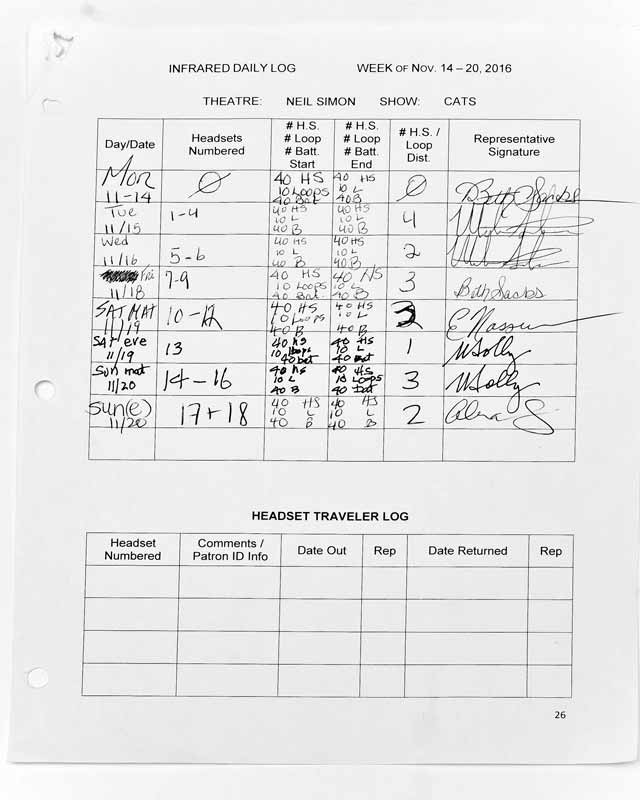 INFRARED DAILY LOG WEEK OF NOV. 14 – 20, 2016
THEATRE: NEIL SIMON SHOW: CATS
Day/Date Headsets Numbered # H.S. # Loop # Batt. Start # H.S. # Loop # Batt. End # H.S. / Loop Dist. Representative Signature
Mon 11-14 Ø 40 HS 10 Loops 40 Bat. 40 HS 10 L 40 B Ø Beth Sachs
Tue 11/15 1-4 40 HS 10 L 40 B 40 HS 10 L 40 B 4
Wed 11/16 5-6 40 HS 10 L 40 B 40 HS 10 L 40 B 2
Fri 11/18 7-9 40 HS 10 Loops 40 Bat. 40 HS 10 L 40 B 3 Beth Sachs
SAT MAT 11/19 10-12 40 HS 10 Loops 40 B 40 HS 10 L 40 B 3
SAT eve 11/19 13 40 hs 10 loops 40 bat 40 HS 10 L 40 bat 1
Sun mat 11/20 14-16 40 hs 10 L 40 B 40 HS 10 Loops 40 bat 3
Sun(e) 11/20 17+18 40 HS 10 L 40 B 40 HS 10 L 40 B 2
HEADSET TRAVELER LOG
Headset Numbered Comments / Patron ID Info Date Out Rep Date Returned Rep
26